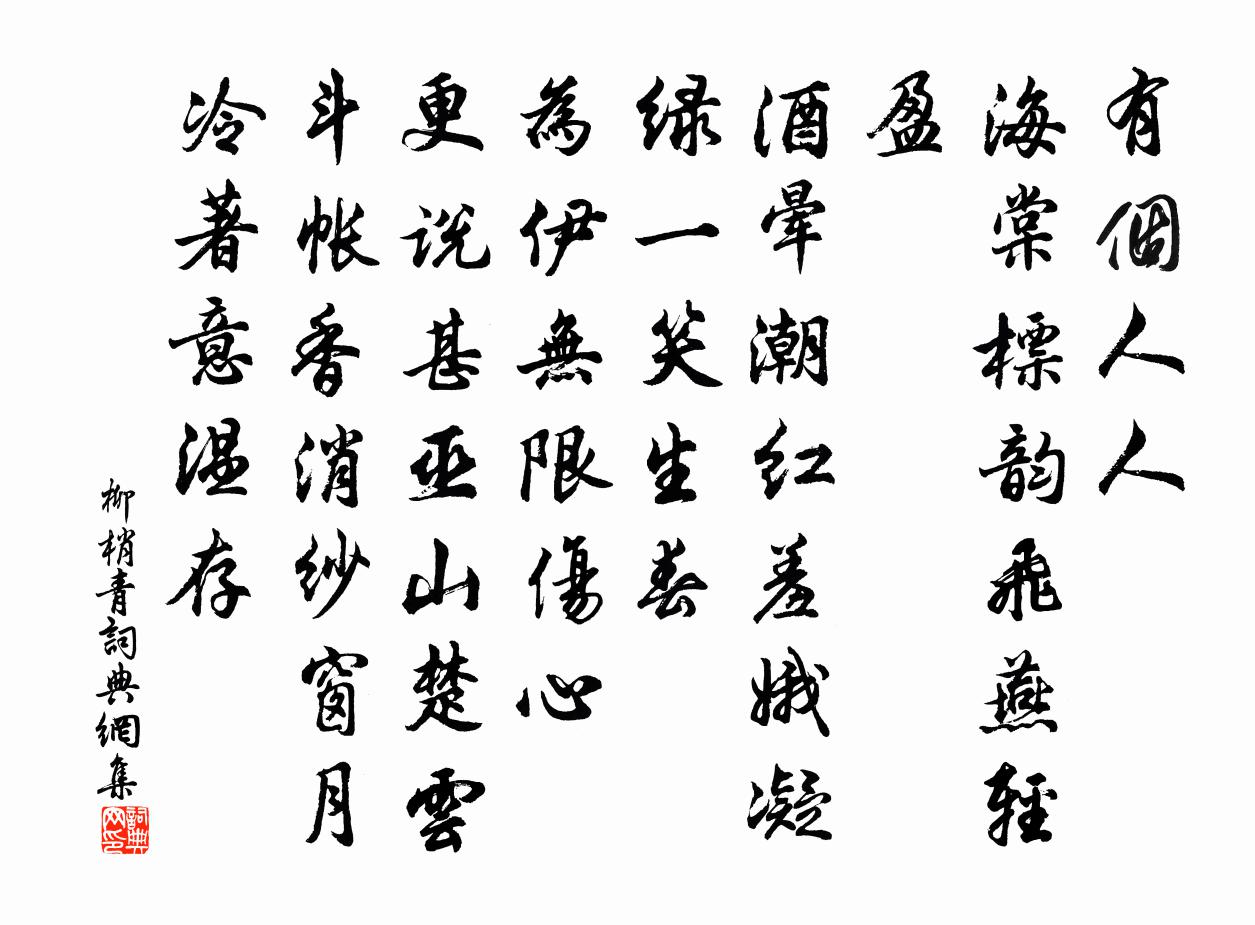 有個人人
海棠標韵飛燕輕
盈
酒暈潮红羞娥凝
绿一笑生春
為伊無限傷心
更说甚巫山楚雲
斗帐香消纱窗月
冷著意温存
柳梢青詞典網集
詞典
网印